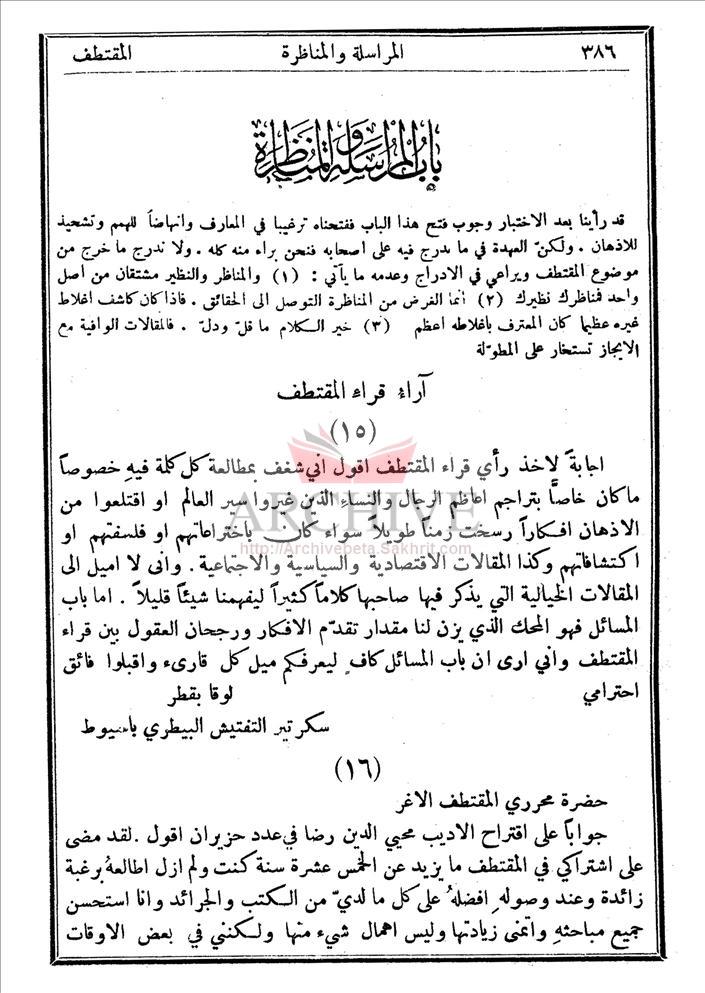 ٣٨٦ المراسلة والمناظرة المقتطف
باب المراسلة والمناظرة
قد رأينا بعد الاختبار وجوب فتح هذا الباب ففتحناه ترغيبا في المعارف وانهاضاً للهمم وتشحيذ
للاذهان . ولكنّ العهدة في ما يدرج فيه على اصحابه فنحن براء منه كله . ولا ندرج ما خرج عن
موضوع المقتطف ويراعي في الادراج وعدمه ما يأتي : (١) والمناظر والنظير مشتقان من اصل
واحد فمناظرك نظيرك (٢) انما الغرض من المناظرة التوصل الى الحقائق . فاذا كان كاشف اغلاط
غيره عظيما كان المعترف باغلاطه اعظم (٣) خير الكلام ما قلّ ودلّ . فالمقالات الوافية مع
الايجاز تستخار على المطوّلة
آراء قراء المقتطف
(١٥)
اجابةً لاخذ رأي قراء المقتطف اقول اني شغف بمطالعة كل كلمة فيهِ خصوصاً
ما كان خاصًّا بتراجم اعاظم الرجال والنساء الذين غيروا سير العالم او اقتلعوا من
الاذهان افكاراً رسخت زمناً طويلاً سواء كان باختراعاتهم او فلسفتهم او
اكتشافاتهم وكذا المقالات الاقتصادية والسياسية والاجتماعية . وانى لا اميل الى
المقالات الخيالية التي يذكر فيها صاحبها كلاماً كثيراً ليفهمنا شيئاً قليلاً . اما باب
المسائل فهو المحك الذي يزن لنا مقدار تقدّم الافكار ورجحان العقول بين قراء
المقتطف واني ارى ان باب المسائل كافٍ ليعرفكم ميل كل قارىء واقبلوا فائق
احترامي لوقا بقطر
سكرتير التفتيش البيطري باسيوط
(١٦)
حضرة محرري المقتطف الاغر
جواباً على اقتراح الاديب محيي الدين رضا في عدد حزيران اقول . لقد مضى
على اشتراكي في المقتطف ما يزيد عن الخمس عشرة سنة كنت ولم ازل اطالعهُ برغبة
زائدة وعند وصولهِ افضلهُ على كل ما لديّ من الكتب والجرائد وانا استحسن
جميع مباحثهِ واتمنى زيادتها وليس اهمال شيء منها ولكنني في بعض الاوقات
ARCHIVE
http://Archivebeta.Sakhrit.com